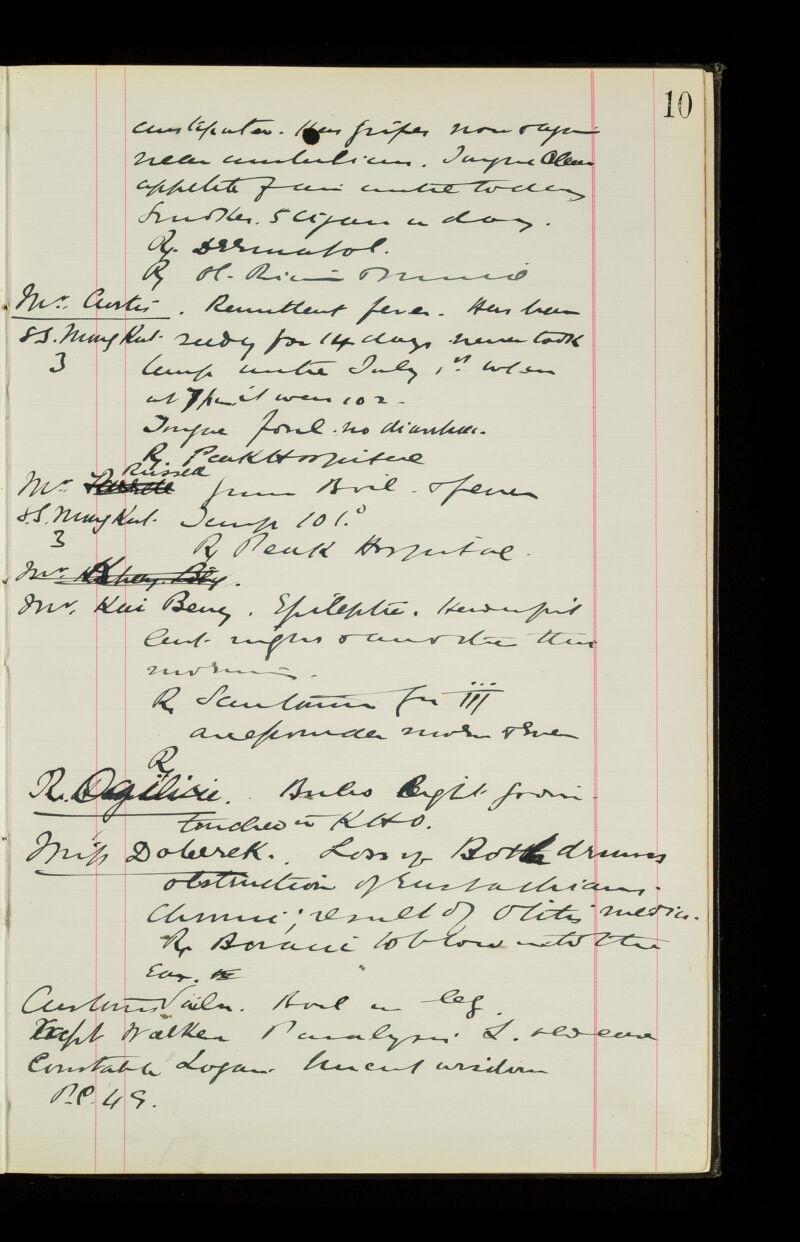 10
constipation. Has gripes now & again
near umbilicus. Tongue clean
appetite fair until today
Smokes. 5 cigars a day.
Rx Dermatol.
Rx Ol. Ricini
Mr. Curtis. Remittent fever. Has been
S.S. Mong Kut. seedy for 14 days never took
3 temp until July 1st when
at 7 pm it was 102-
Tongue foul. no diarrhoea.
Rx Peak Hospital
Russell
Mr. from Boil. & fever
S.S. Mong Kut. Temp 101.°
3 Rx Peak Hospital.
Mr.
Mr. Kai Beng. Epileptic. Had a fit
last night & another this
morning.
Rx Santonin gr iii
and powder morn & even
Rx
R. Ogilvie. Bubo Right groin.
K H O.
Miss Doberek. Loss of Both drums
obstruction of Eustachians.
Chronic; result of Otitis media.
Rx Boracic to blow into the
Ear.
Customs Sailor. Boil on leg.
Capt Walker Paralysis L. old case
Constable Logan. uncut wisdom
P.C. 49.